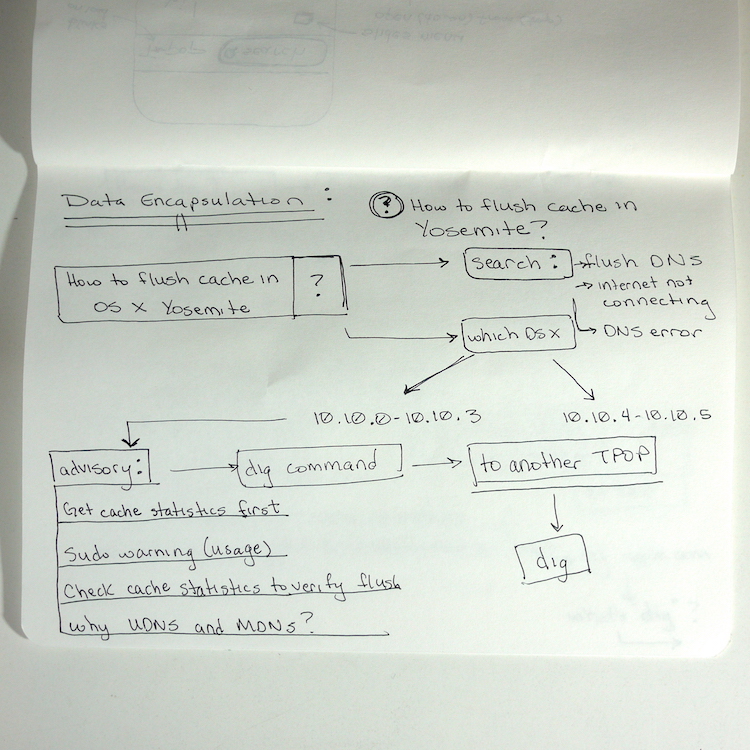 Data Encapsulation:
? How to flush cache in
Yosemite?
How to flush cache in
OS X Yosemite
?
search:
flush DNS
internet not
connecting
DNS error
which OSX
10.10.0-10.10.3
10.10.4-10.10.5
advisory:
dig command
to another TPOP
dig
Get cache statistics first
Sudo warning (usage)
Check cache statistics to verify flush
why UDNS and MDNS?